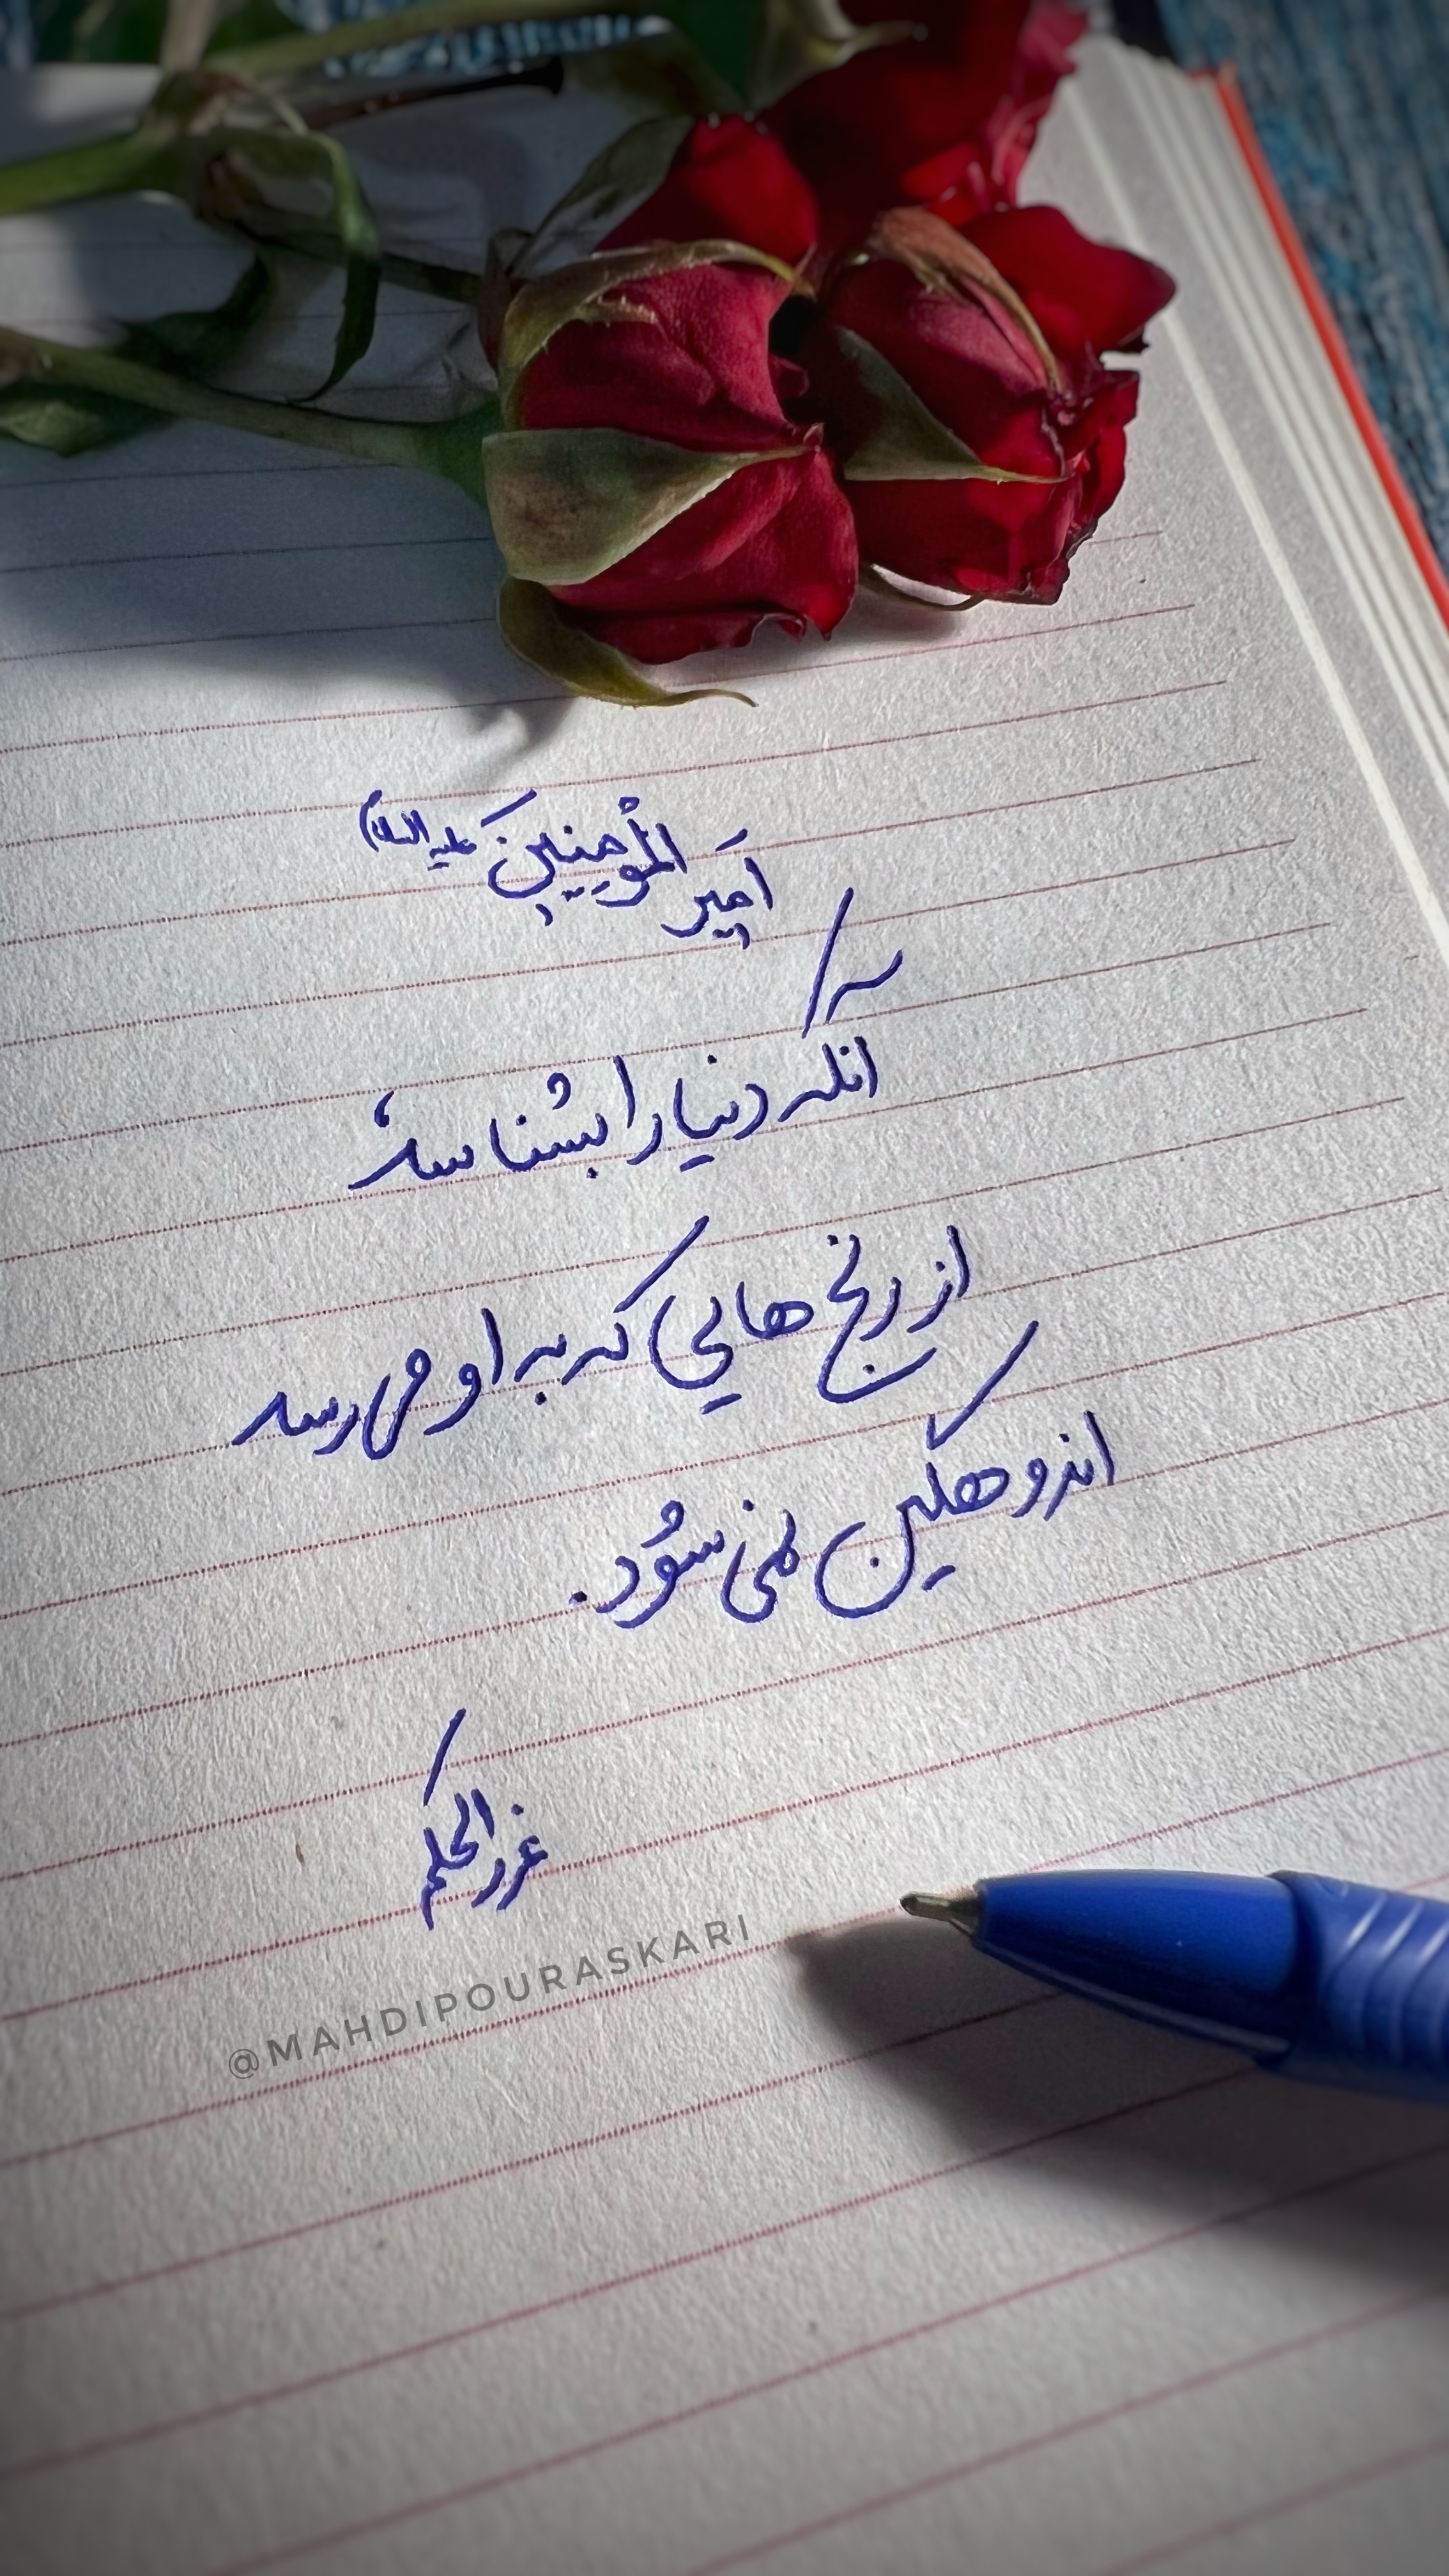 امَیر المُؤمِنِینَ علیه السلام
انکه دنیا را بشناسد،
از رنج هایی که به او می رسد
اندوهگین نمی شود.
غررالحکم
@MAHDIPOURASKARI